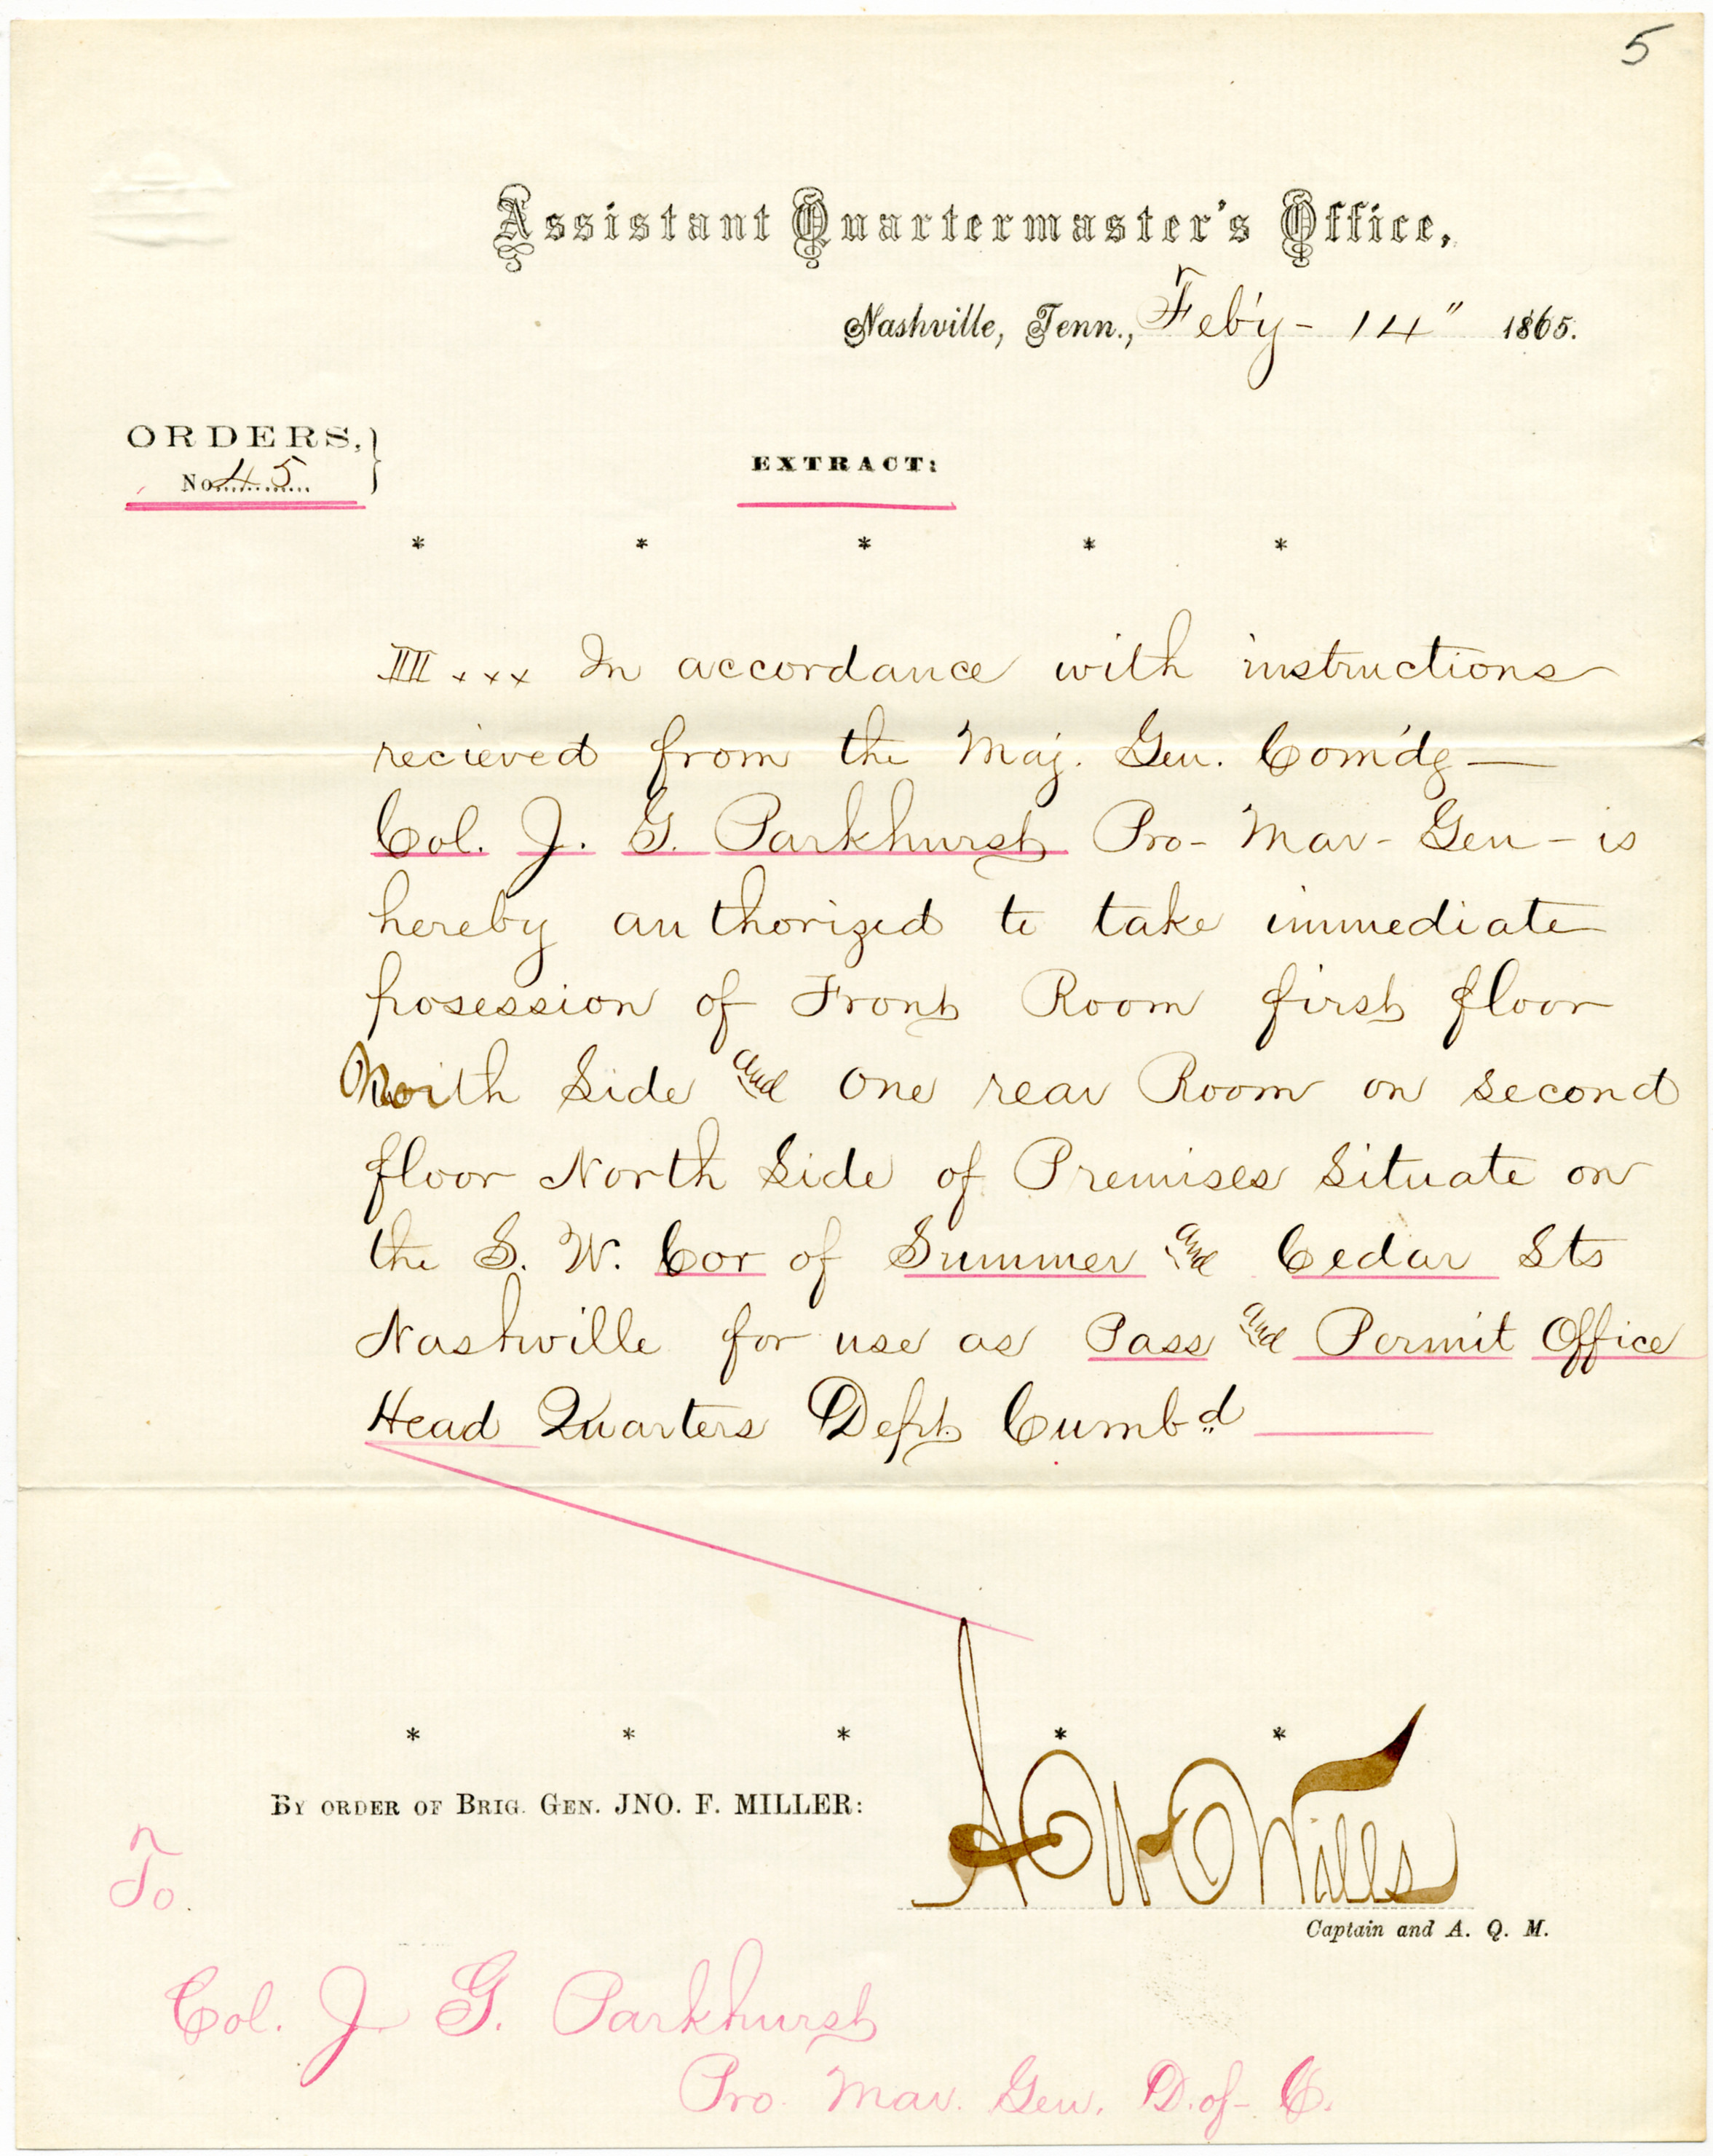 5
Assistant Quartermaster's Office,
Nashville, Tenn., Feb'y - 14" 1865.
ORDERS,}
No. 45
EXTRACT:
* * * * *
III xxx In accordance with instructions
recieved from the Maj. Gen. Com'dg —
Col. J. G. Parkhurst Pro- Mar- Gen - is
hereby authorized to take immediate
posession of Front Room first floor
North Side and One rear Room on second
floor North Side of Premises Situate on
the S. W. Cor of Summer and Cedar Sts
Nashville for use as Pass and Permit Office
Head Quarters Dept. Cumbd
* * * * *
BY ORDER OF BRIG. GEN. JNO. F. MILLER:
Wills
Captain and A. Q. M.
To.
Col. J G. Parkhurst
Pro. Mar. Gen. D. of - C.